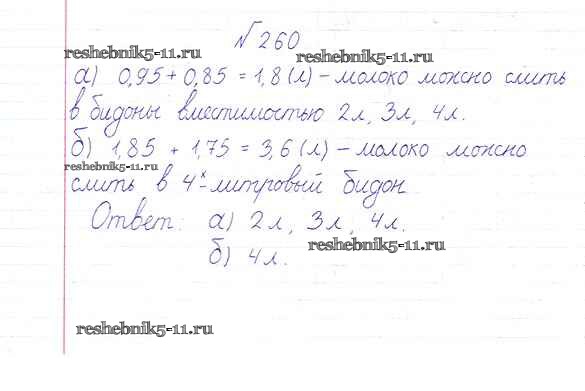 № 260
reshebnik5-11.ru
reshebnik5-11.ru
а) 0,95 + 0,85 = 1,8 (л) – молоко можно слить
в бидоны вместимостью 2л, 3л, 4л.
б) 1,85 + 1,75 = 3,6 (л) – молоко можно
reshebnik5-11.ru
слить в 4х-литровый бидон
Ответ: а) 2л, 3л, 4л.
reshebnik5-11.ru
б) 4л.
reshebnik5-11.ru